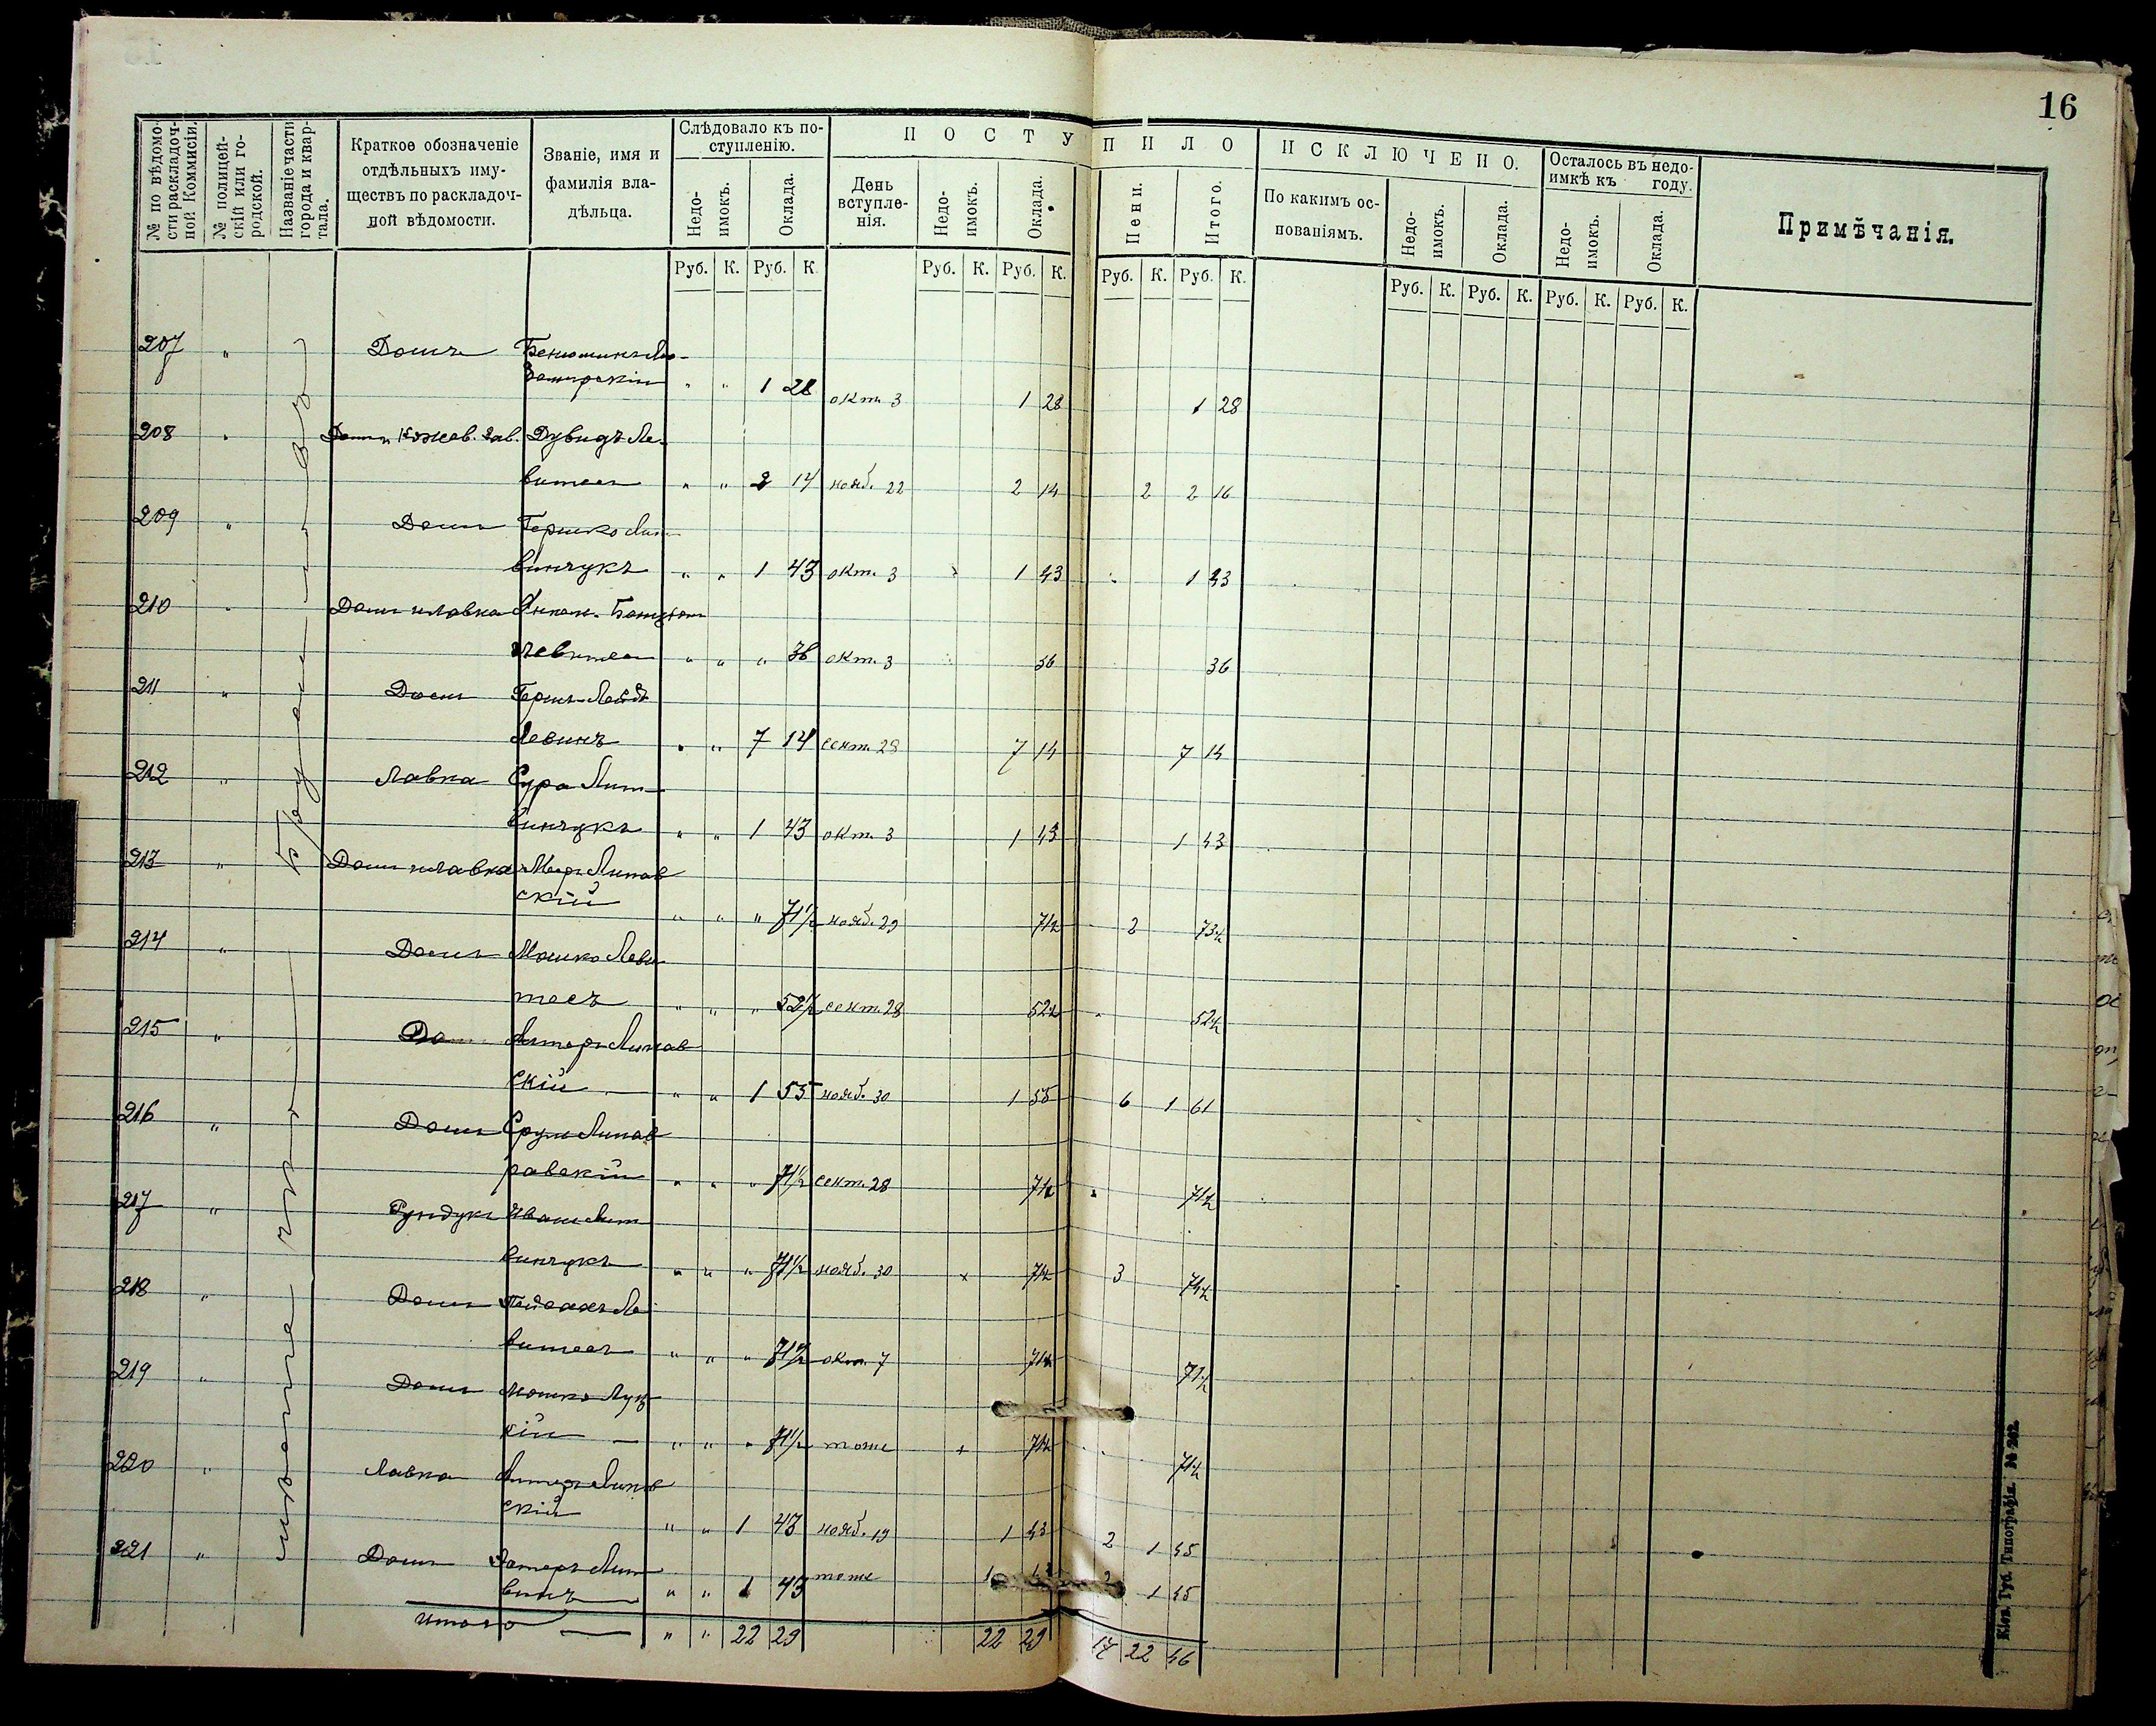 16
№ по вѣдомости раскладочной Коммисіи.
№ полицейскій или городской.
Названіе части города и квартала.
Краткое обозначеніе отдѣльныхъ имуществъ по раскладочной вѣдомости.
Званіе, имя и фамилія владѣльца.
Слѣдовало къ поступленію.
Недоимокъ.
Оклада.
ПОСТУПИЛО
День вступленія.
Недоимокъ.
Оклада.
Пени.
Итого.
ИСКЛЮЧЕНО.
По какимъ основаніямъ.
Недоимокъ.
Оклада.
Осталось въ недоимкѣ къ году.
Недоимокъ.
Оклада.
Примѣчанія.
Руб. К. Руб. К. Руб. К. Руб. К. Руб. К. Руб. К. Руб. К. Руб. К. Руб. К. Руб. К.
207 " Домъ
" " 1 28 окт. 3 1 28 1 28
208 " Кожев. зав. Дувидъ Ле-
витесъ " " 2 14 нояб. 22 2 14 2 2 16
209 " Домъ Гершко Лит-
винчукъ " " 1 43 окт. 3 1 43 1 43
210 " Домъ и лавка
Левитесъ " " " 36 окт. 3 36 36
211 " Домъ Гершъ Лейба
Левинъ " " 7 14 сент. 28 7 14 7 14
212 " Лавка Сура Лит-
винчукъ " " 1 43 окт. 3 1 43 1 43
213 " Домъ и лавка Меер Липов
скій " " " 71½ нояб. 29 71½ 2 73½
214 " Домъ Мошко Леви
тесъ " " " 52½ сент. 28 52½ 52½
215 " До Алтеръ Липов
скій " " 1 55 нояб. 30 1 55 6 1 61
216 " Домъ Срулъ
" " " 71½ сент. 28 71½ 71½
217 " Иванъ Лит
винчукъ " " " 71½ нояб. 30 71½ 3 74½
218 " Домъ Пейсахъ Ле
витесъ " " " 71½ окт. 7 71½ 71½
219 " Домъ Мошко Луц
кій " " " 71½ тоже 71½ 71½
220 " Лавка Алтеръ Липов
скій " " 1 43 нояб. 19 1 43 2 1 45
221 " Домъ Лит
винъ " " 1 43 тоже 1 43 2 1 45
Итого " " 22 29 22 29 17 22 46
Кіев. Губ. Типографія. № 262.